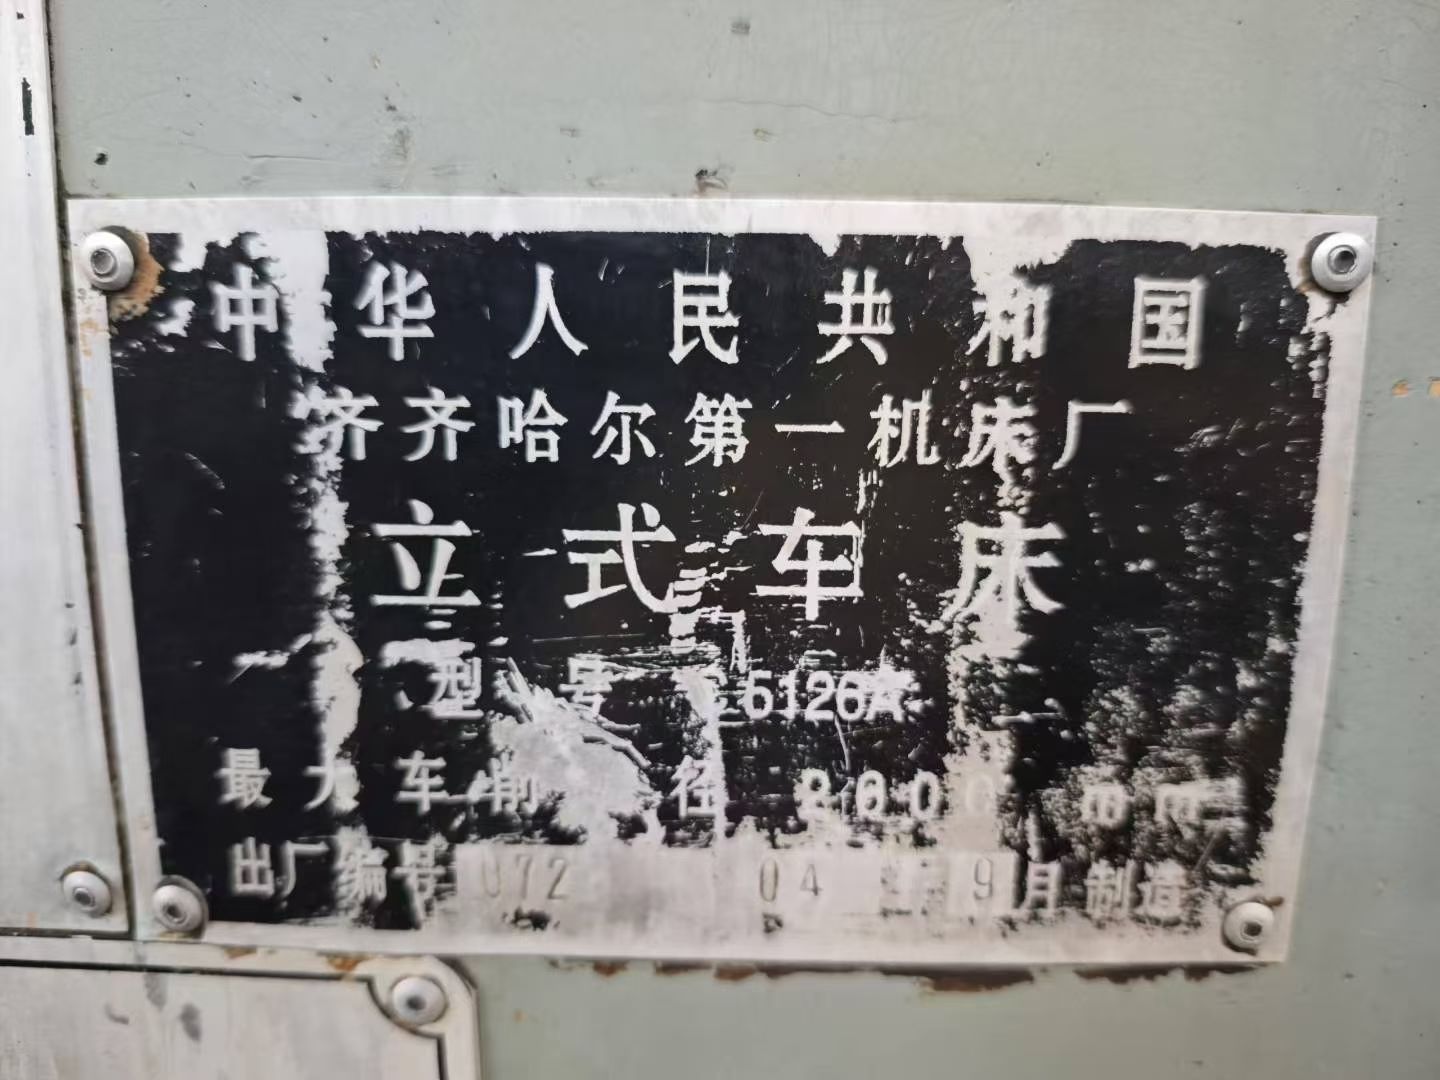 中华人民共和国
齐齐哈尔第一机床厂
立式车床
型号 5126A
最大车削 径 2600 mm
出厂编号 072 04 9月制造